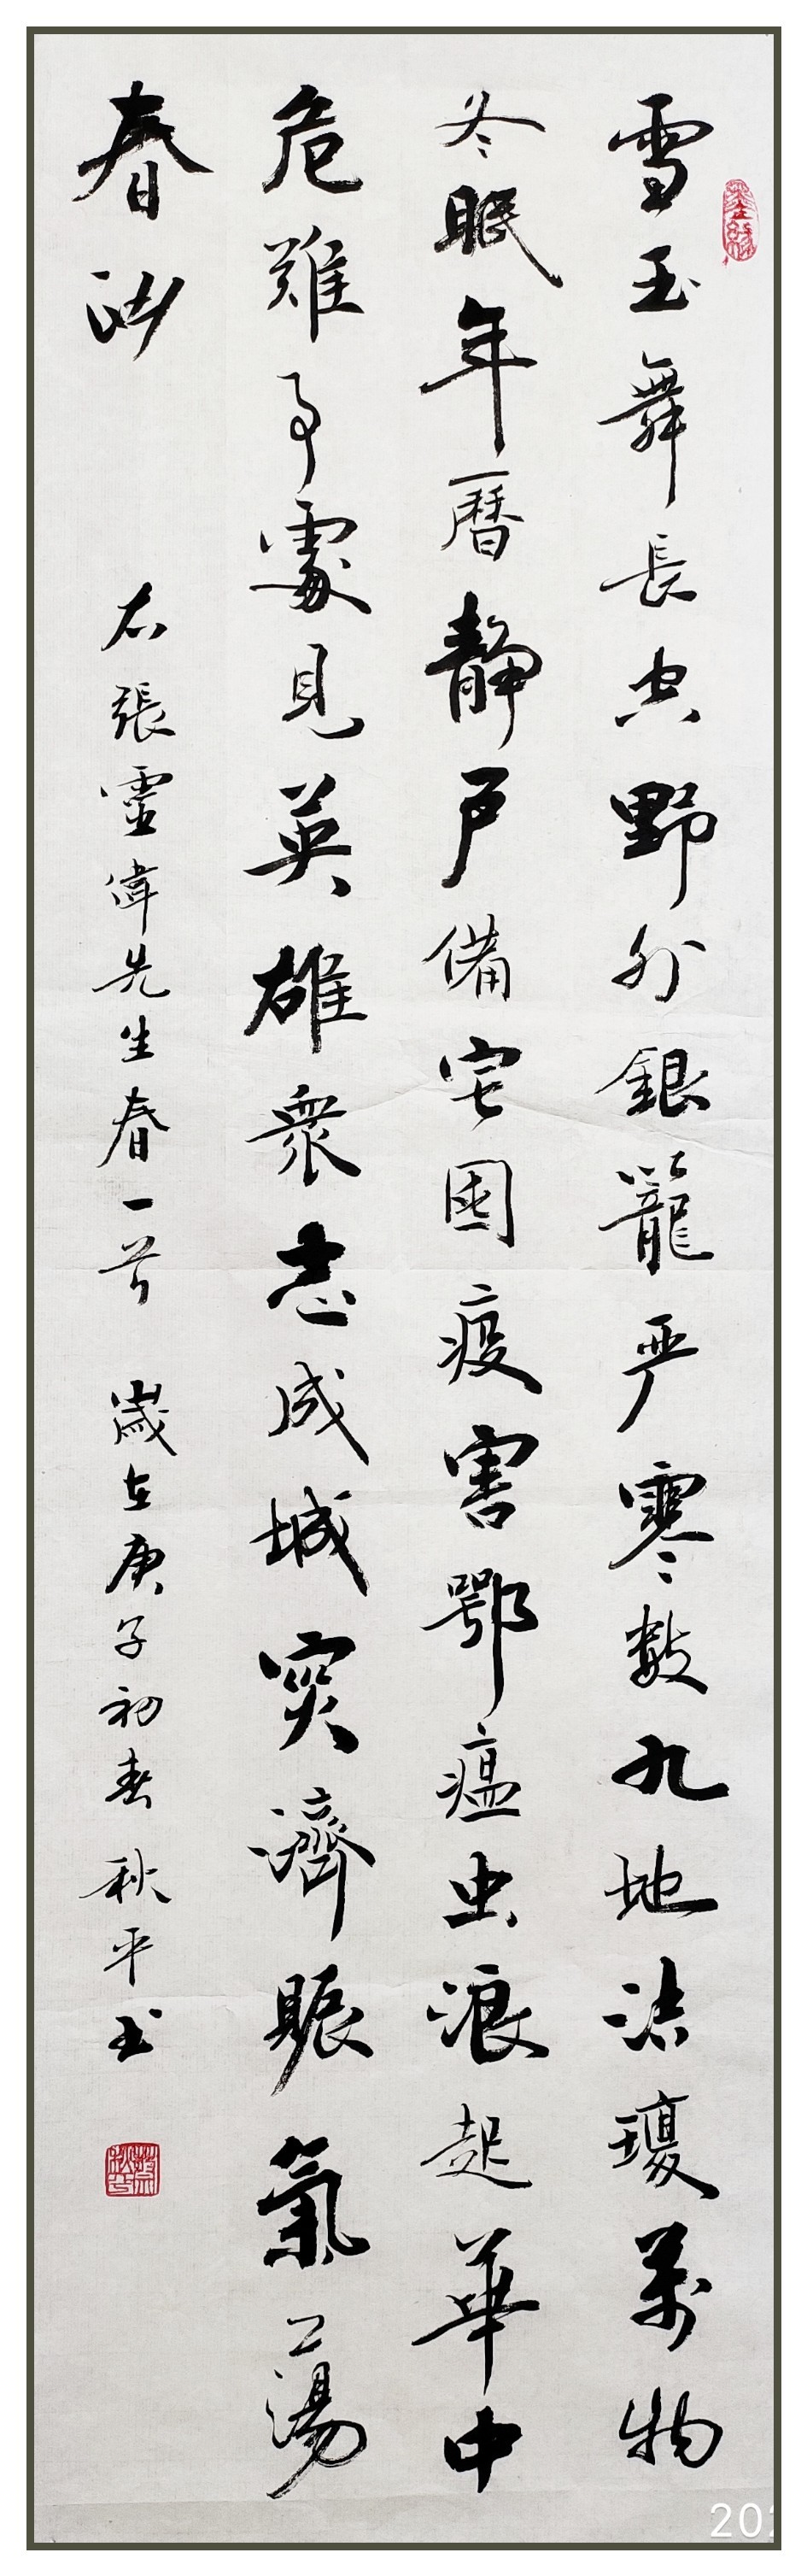 雪玉舞長空野外銀籠严寒數九地沽瓊萬物
冬眠年曆靜戶備宅困疫害鄂瘟虫浪起華中
危難事處見英雄衆志成城突濟賑氣蕩
春
右張靈偉先生春一首 歲在庚子初春 秋平书
202